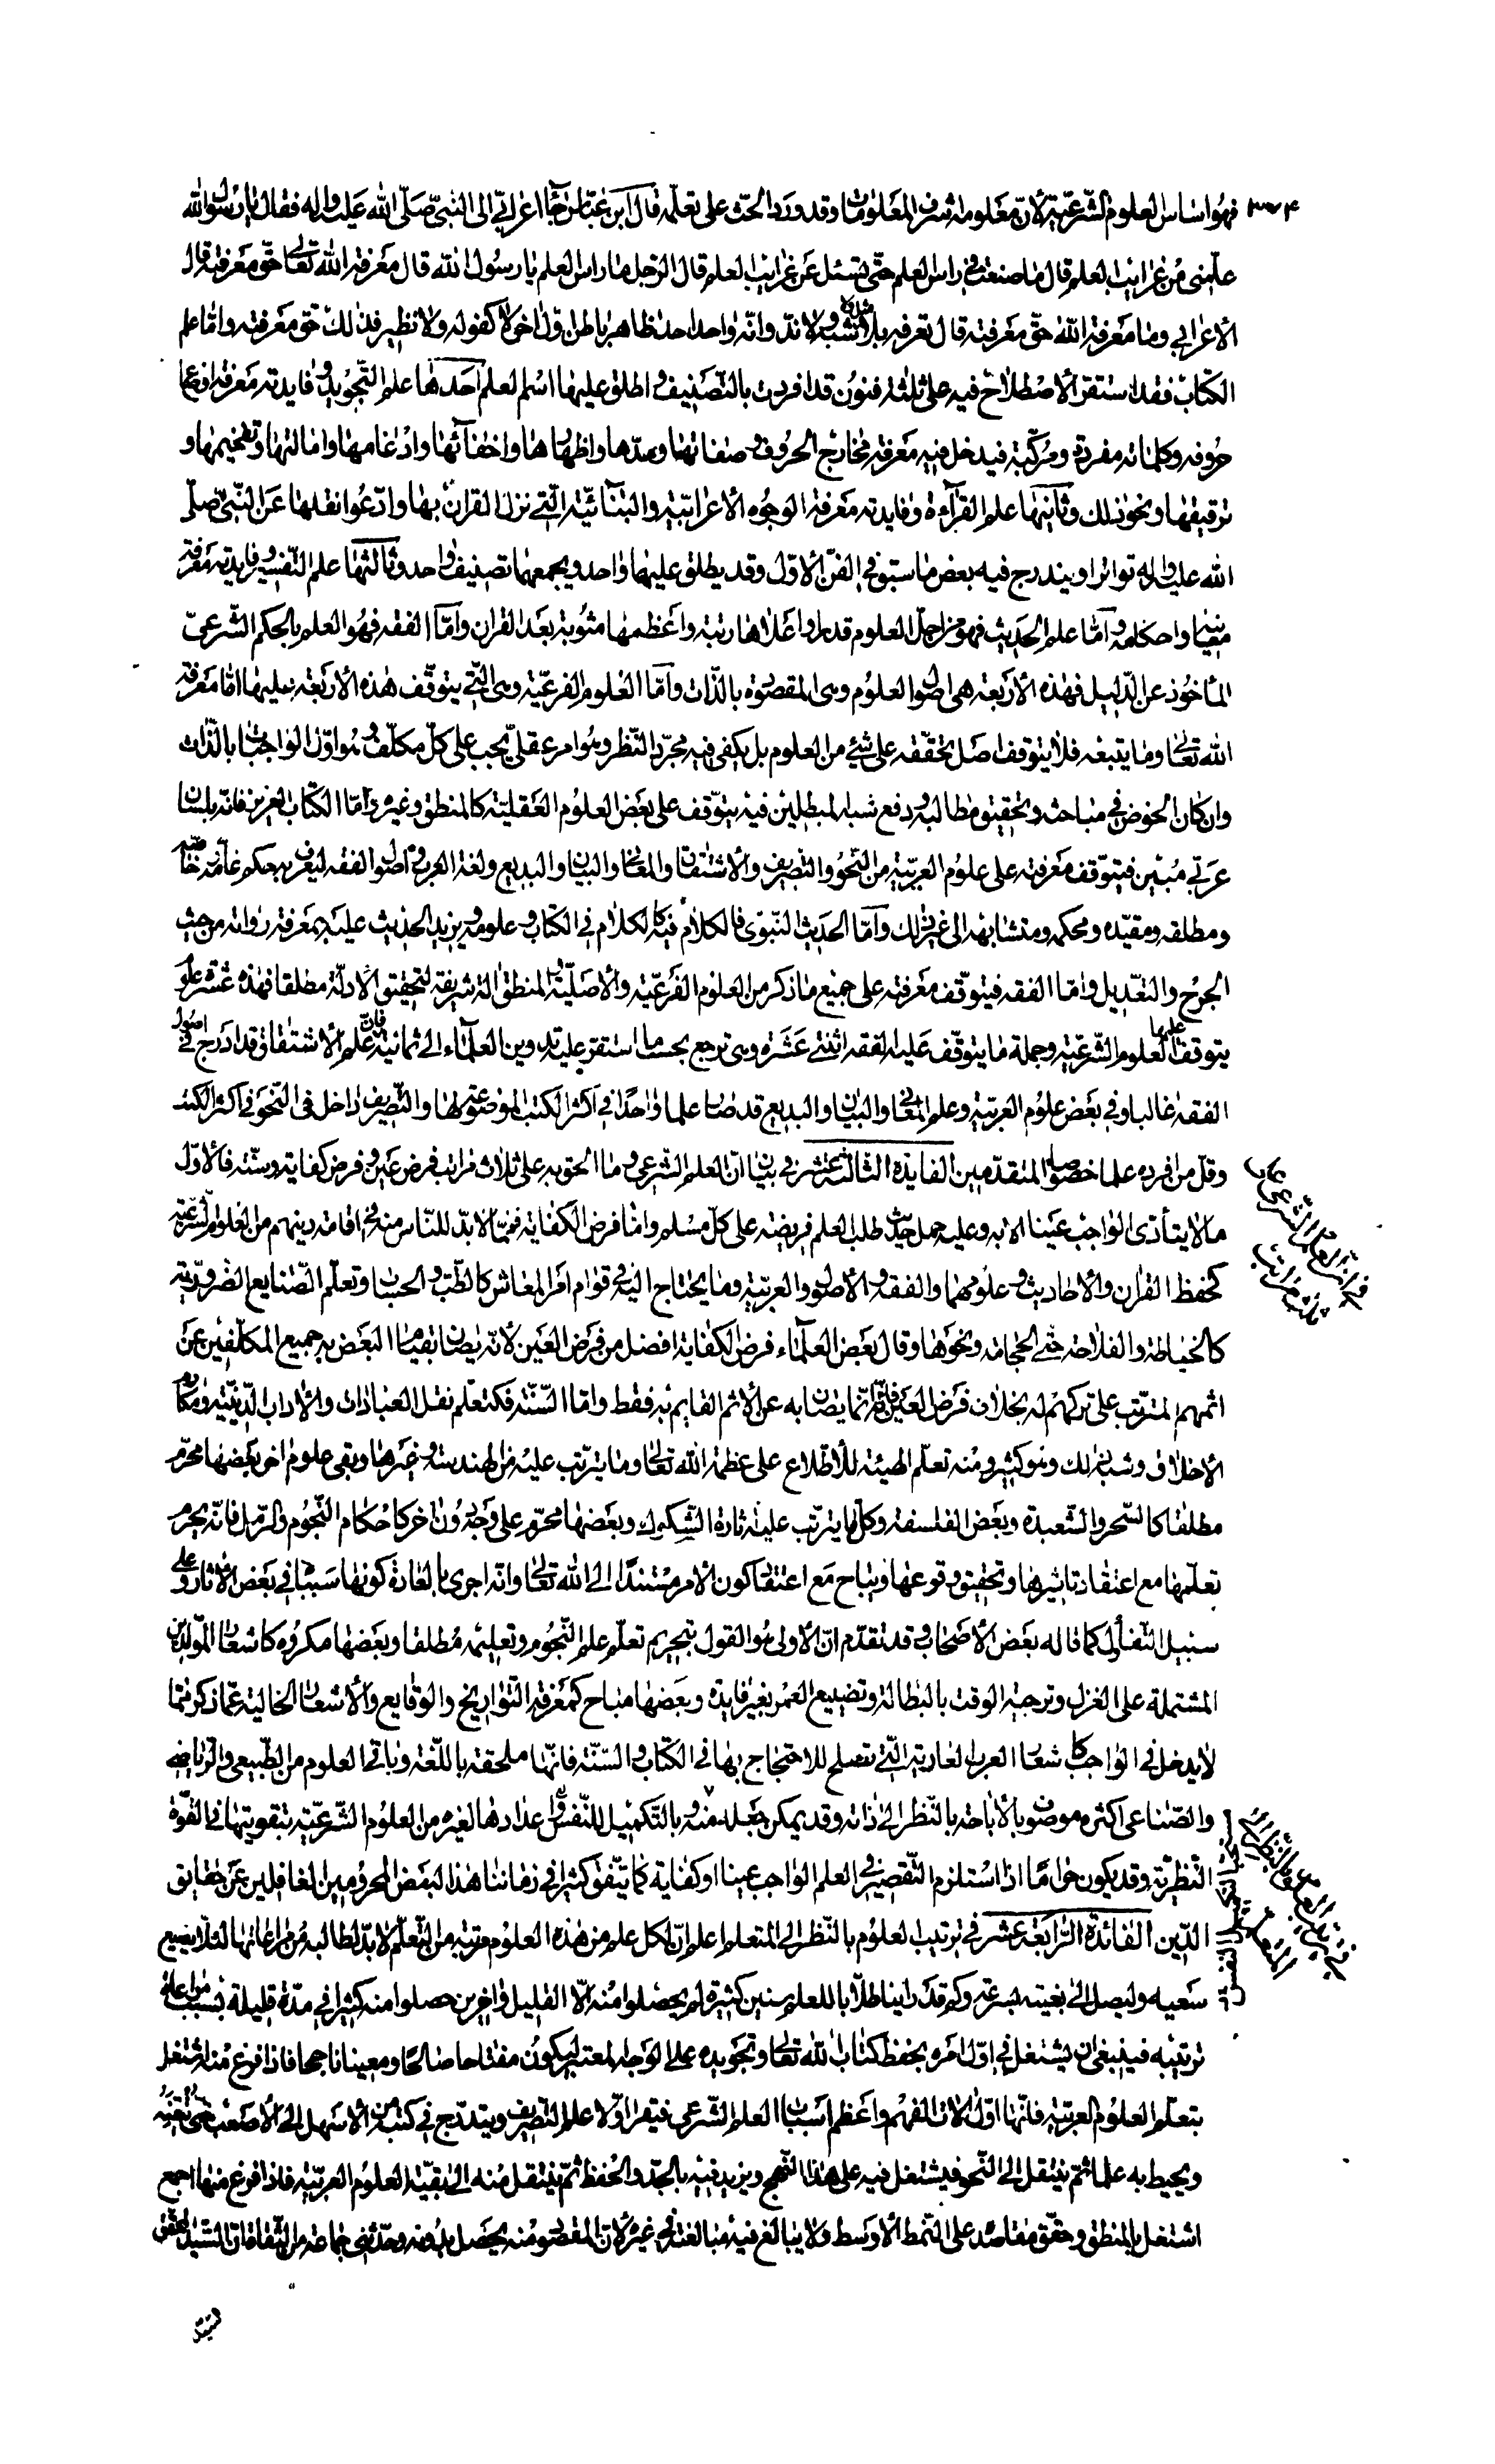 ٣٧٤
فهو اساس العلوم الشرعية لان معلومه اشرف المعلومات وقد ورد الحث على تعلمه قال ابن عباس جاء اعرابي الى النبي صلى الله عليه واله فقال يا رسول الله
علمنى من غرايب العلم قال ما صنعت فى راس العلم حتى تسئل عن غرايب العلم قال الرجل ما راس العلم يا رسول الله قال معرفة الله تعالى حق معرفته قال
الاعرابي وما معرفة الله حق معرفته قال تعرفه بلا مثال ولا شبه ولا ند وانه واحد احد ظاهر باطن اول اخر لا كفو له ولا نظير فذلك حق معرفته واما علم
الكتاب فقد استقر الاصطلاح فيه على ثلثة فنون قد افردت بالتصنيف واطلق عليها اسم العلم احدها علم التجويد وفايدته معرفة اوضاع
حروفه وكلماته مفردة ومركبة فيدخل فيه معرفة مخارج الحروف وصفاتها ومدها واظهارها واخفائها وادغامها وامالتها وتفخيمها و
ترقيقها ونحو ذلك وثانيها علم القرآءة وفايدته معرفة الوجوه الاعرابية والبنائية التي نزل القران بها وادعوا نقلها عن النبي صلى
الله عليه واله تواترا ويندرج فيه بعض ما سبق في الفن الاول وقد يطلق عليهما واحد ويجمعهما تصنيف واحد وثالثها علم التفسير وفايدته معرفة
معانيه واحكامه واما علم الحديث فهو من اجل العلوم قدرا واعلاها رتبة واعظمها مثوبة بعد القران واما الفقه فهو العلم بالحكم الشرعي
المأخوذ عن الدليل فهذه الاربعة هى اصول العلوم وهى المقصودة بالذات واما العلوم الفرعية وهى التي يتوقف هذه الاربعة عليها اما معرفة
الله تعالى وما يتبعه فلا يتوقف اصل تحققه على شئ من العلوم بل يكفى فيه مجرد النظر وهو امر عقلى يجب على كل مكلف وهو اول الواجبات بالذات
وان كان الخوض في مباحثه وتحقيق مطالبه ودفع شبه المبطلين فيه يتوقف على بعض العلوم العقلية كالمنطق وغيره واما الكتاب العزيز فانه بلسان
عربي مبين فيتوقف معرفته على علوم العربية من النحو والتصريف والاشتقاق والمعانى والبيان والبديع ولغة العرب واصول الفقه ليعرف به حكم عامه خاصه
ومطلقه ومقيده ومحكمه ومتشابهه الى غير ذلك واما الحديث النبوى فالكلام فيه كالكلام في الكتاب وعلومه ويزيد الحديث عليه بمعرفة رواته من حيث
الجرح والتعديل واما الفقه فيتوقف معرفته على جميع ما ذكر من العلوم الفرعية والاصلية والمنطق الة شريفة لتحقيق الادلة مطلقا فهذه عشرة علوم
يتوقف عليها العلوم الشرعية وجملة ما يتوقف عليه الفقه اثنتى عشره وهى ترجع بحسب ما استقر عليه تدوين العلماء الى ثمانية فان علم الاشتقاق قد ادرج فى اصول
الفقه غالبا وفي بعض علوم العربية وعلم المعاني والبيان والبديع قد صار علما واحدا في اكثر الكتب الموضوعة لها والتصريف داخل فى النحو في اكثر الكتب
وقل من افرده علما خصوصا المتقدمين الفايدة الثالثة عشر في بيان ان العلم الشرعى وما الحق به على ثلاث مراتب فرض عين وفرض كفاية وسنة فالاول
ما لا يتأدى الواجب عينا الا به وعليه حمل حديث طلب العلم فريضة على كل مسلم واما فرض الكفاية فمما لا بد للناس منه فى اقامة دينهم من العلوم الشرعية
كحفظ القران والاحاديث وعلومهما والفقه والاصول والعربية وما يحتاج اليه فى قوام امر المعاش كالطب والحساب وتعلم الصنايع الضرورية
كالخياطة والفلاحة حتى الحجامة ونحوها وقال بعض العلماء فرض الكفاية افضل من فرض العين لانه يصان بقيام البعض به جميع المكلفين عن
اثمهم المترتب على تركهم له بخلاف فرض العين فانه انما يصان به عن الاثم القايم به فقط واما السنة فكتعلم نفل العبادات والاداب الدينية ومكارم
الاخلاق وشبه ذلك وهو كثير ومنه تعلم الهيئة للاطلاع على عظمة الله تعالى وما يترتب عليه من الهندسة وغيرها وبقى علوم اخر بعضها محرم
مطلقا كالسحر والشعبدة وبعض الفلسفة وكل ما يترتب عليه اثارة الشكوك وبعضها محرم على وجه دون اخر كاحكام النجوم والرمل فانه يحرم
تعلمها مع اعتقاد تاثيرها وتحقيق وقوعها ويباح مع اعتقاد كون الامر مستندا الى الله تعالى وانه اجرى العادة كونها سببا في بعض الاثار وعلى
سبيل التفأل كما قاله بعض الاصحاب وقد تقدم ان الاولى هو القول بتحريم تعلم علم النجوم وتعليمه مطلقا وبعضها مكروه كاشعار المولدين
المشتملة على الغزل وتزجية الوقت بالبطالة وتضييع العمر بغير فايدة وبعضها مباح كمعرفة التواريخ والوقايع والاشعار الخالية عما ذكر مما
لا يدخل في الواجب كاشعار العرب العاربة التي تصلح للاحتجاج بها في الكتاب والسنة فانها ملحقة باللغة وباقي العلوم من الطبيعى والرياضى
والصناعى اكثره موصوف بالاباحة بالنظر الى ذاته وقد يمكن جعله مندوبا لتكميل النفس واعدادها لغيره من العلوم الشرعية بتقويتها في القوة
النظرية وقد يكون حراما اذا استلزم التقصير في العلم الواجب عينا او كفاية كما يتفق كثيرا في زماننا هذا لبعض المحرومين الغافلين عن حقايق
الدين الفائدة الرابعة عشر في ترتيب العلوم بالنظر الى المتعلم اعلم ان لكل علم من هذه العلوم مرتبة من التعلم لا بد لطالبه من مراعاتها لئلا يضيع
سعيه وليصل الى بغيته بسرعة وكم قد راينا طلابا للعلم سنين كثيرة لم يحصلوا منه الا القليل واخرين حصلوا منه كثيرا في مدة قليلة بسبب مراعاة
ترتيبه فينبغى ان يشتغل في اول امره بحفظ كتاب الله تعالى وتجويده على الوجه المعتبر ليكون مفتاحا صالحا ومعينا ناجحا فاذا فرغ منه اشتغل
بتعلم العلوم العربية فانها اول الات الفهم واعظم اسباب العلم الشرعى فيقرا اولا علم التصريف ويتدرج في كتبه من الاسهل الى الاصعب حتى يتقنه
ويحيط به علما ثم ينتقل الى النحو فيشتغل فيه على هذا النهج ويزيد فيه بالجد والحفظ ثم ينتقل منه الى بقية العلوم العربية فاذا فرغ منها اجمع
اشتغل بالمنطق وحقق مقاصده على النمط الاوسط ولا يبالغ فيه مبالغته فى غيره لان المقصود منه يحصل بدونه وحدثنى جماعة من الثقات ان السيد المحقق
السيد